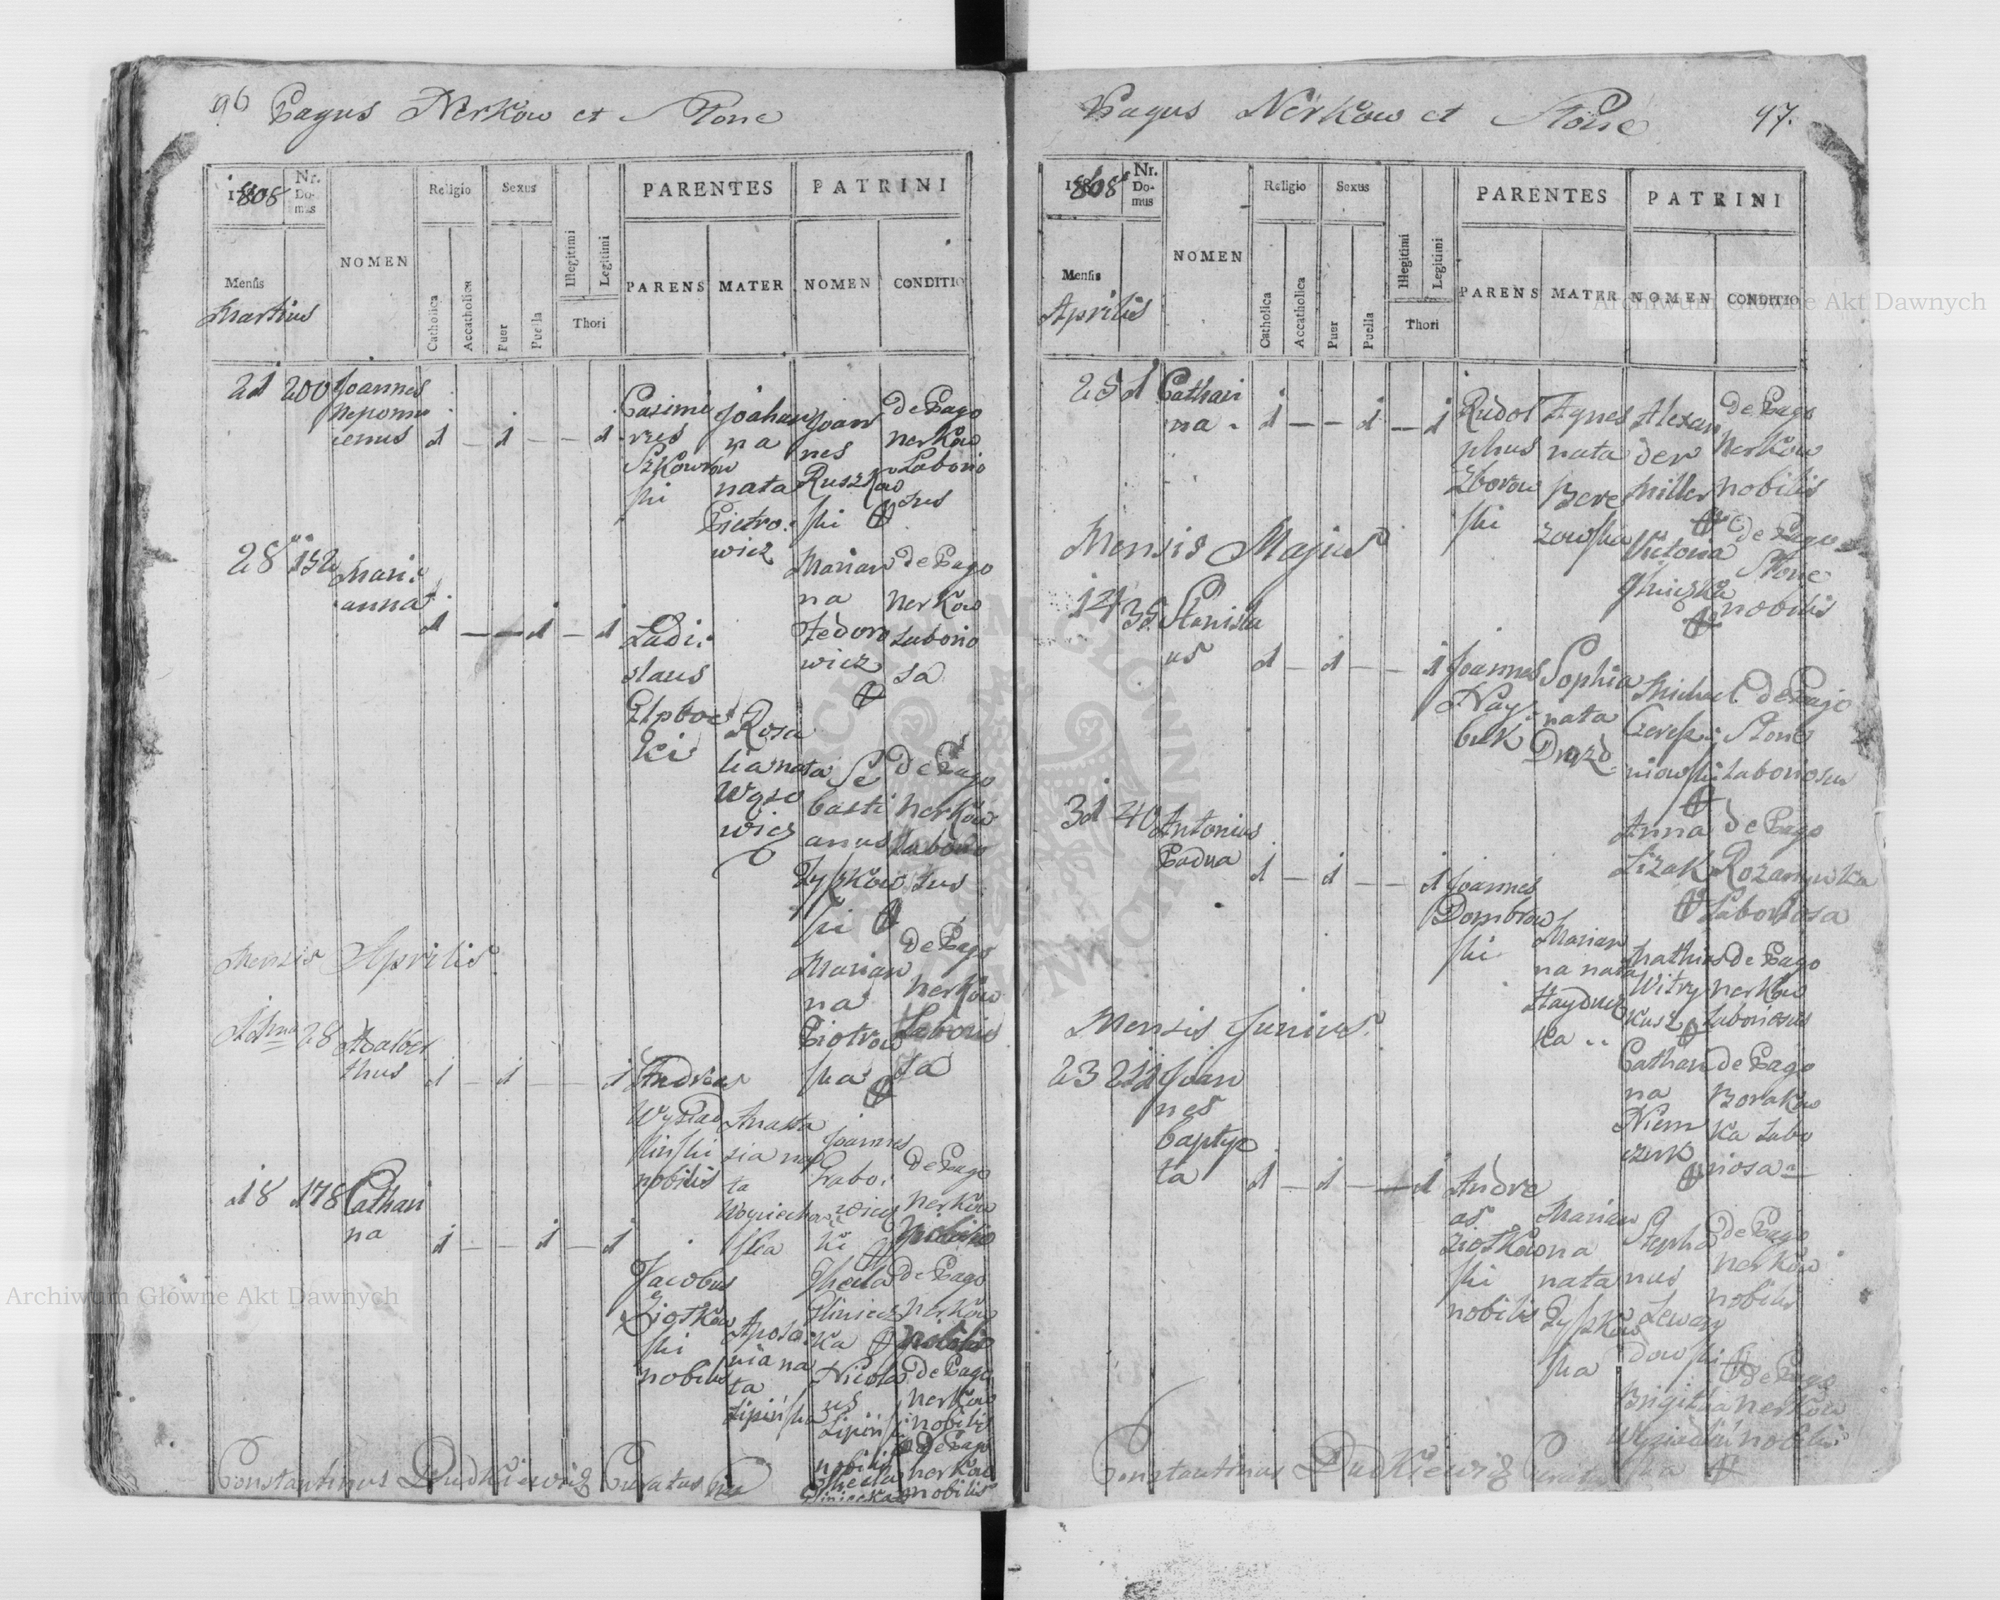 96 Pagus Nerkow et Słone
1808
Nr.
Do-
mus
Mensis
Martius
NOMEN
Religio
Catholica
Accatholica
Sexus
Puer
Puella
Illegitimi
Legitimi
Thori
PARENTES
PARENS
MATER
PATRINI
NOMEN
CONDITIO
21 200 Joannes
Nepomu
cenus 1 — 1 — — 1
Casimi
rus
Szkowron
ski
Joahan
na
nata
Pietro
wicz
Joan
nes
Ruszkow
ski
de Pago
Nerkow
Laborio
sus
28 152 Mari
anna
1 — — 1 — 1
Ladi
slaus
Rosa
lia nata
Wąso
wicz
Marian
na
Fedoro
wicz
de Pago
Nerkow
Laborio
sa
Se
basti
anus
Zyszkow
ski
de Pago
Nerkow
Laborio
sus
Marian
na
Piotrow
ska
de Pago
Nerkow
Laborio
sa
Mensis Aprilis
28 Adalber
thus 1 — 1 — — 1
Andreas
nobilis
Anasta
sia na
ta
ska
Joannes
Grabo
wiec
ki
de Pago
Nerkow
nobilis
Thecla
Gliniecz
ka
de Pago
Nerkow
nobilis
18 178 Cathari
na 1 — — 1 — 1
Jacobus
Ziołkow
ski
nobilis
Apolo
nia na
ta
Lipińska
Nicola
us
Lipiński
nobilis
de Pago
Nerkow
nobilis
Thecla
Gliniecka
de Pago
Nerkow
nobilis
Constantinus Dudkiewicz Curatus
Pagus Nerkow et Słone 97.
1808
Nr.
Do-
mus
Mensis
Aprilis
NOMEN
Religio
Catholica
Accatholica
Sexus
Puer
Puella
Illegitimi
Legitimi
Thori
PARENTES
PARENS
MATER
PATRINI
NOMEN
CONDITIO
25 1 Cathari
na 1 — — 1 — 1
Rudol
phus
Zborow
ski
Agnes
nata
Bere
zowska
Alexan
der
Miller
de Pago
Nerkow
nobilis
Victoria
de Pago
Słone
nobilis
Mensis Majus
14 38 Stanisla
us 1 — 1 — — 1
Joannes
Nay
buk
Sophia
nata
Drozd
Michael
Czerep
niowski
de Pago
Słone
Laboriosus
Anna
Lizak
de Pago
Rozaniowka
Laboriosa
31 40 Antonius
Padua 1 — 1 — — 1
Joannes
Dombrow
ski
Marian
na nata
Haydu
ka
Mathias
Witry
kusz
de Pago
Nerkow
Laboriosus
Cathari
na
Niem
czuk
de Pago
Borakow
ka Labo
riosa
Mensis Junius
23 211 Joan
nes
baptys
ta 1 — 1 — — 1
Andre
as
Ziołkow
ski
nobilis
Marian
na
nata
Zyszkow
ska
Stepha
nus
Lewan
dowski
de Pago
Nerkow
nobilis
Brigitha
de Pago
Nerkow
nobilis
Constantinus Dudkiewicz Curatus
Archiwum Główne Akt Dawnych
Archiwum Główne Akt Dawnych
ARCHIWUM GŁÓWNE AKT DAWNYCH